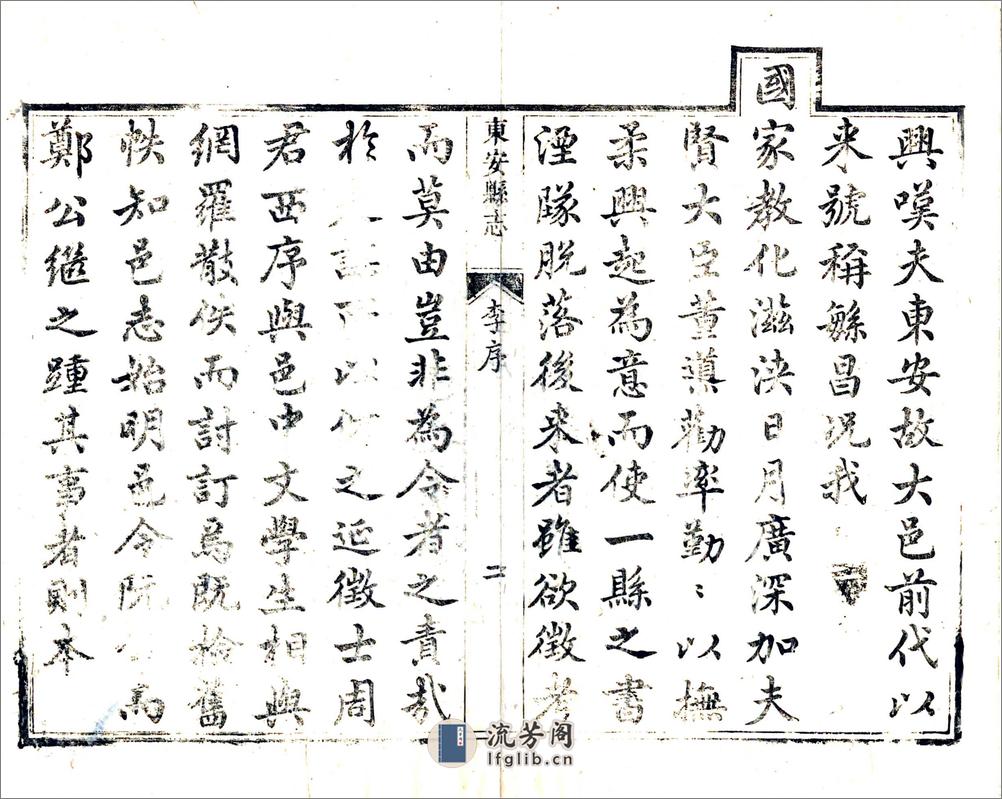 興嘆夫東安故大邑前代以
来號稱繇昌况我
國家教化滋浹日月廣深加夫
賢大臣董䔫勸率勤〻以撫
柔興起為意而使一縣之書
湮隊脱落後来者雖欲徴考
東安縣志 李序 二
而莫由豈非為令者之責哉
於 之延徴士周
君西序與邑中文學生相與
網羅散佚而討訂焉既檢舊
帙知邑志始明邑令阮 馬
鄭公繼之踵其事者則本
流芳阁
lfglib.cn